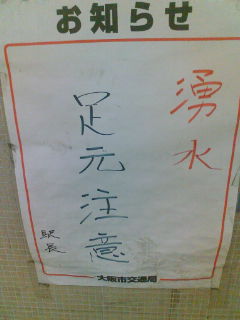 お知らせ
湧水
足元注意
駅長
大阪市交通局